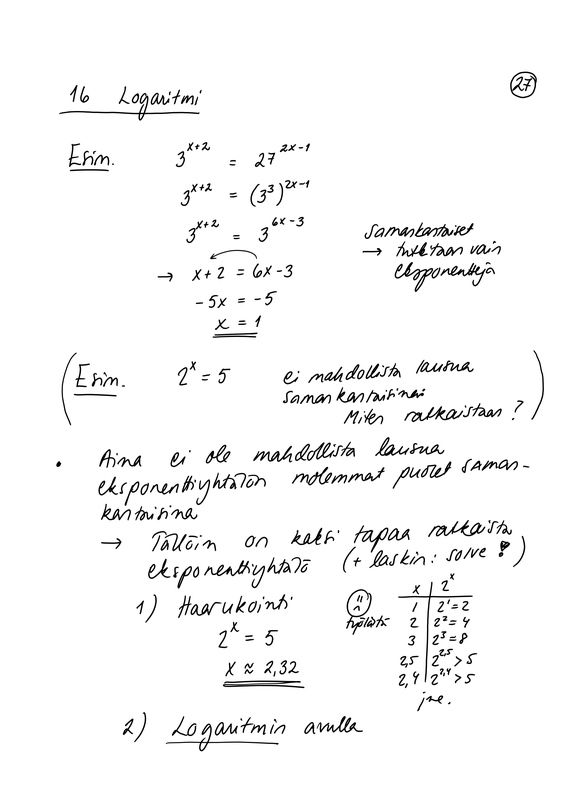 27
16 Logaritmi
Esim. 3^(x+2) = 27^(2x-1)
3^(x+2) = (3^3)^(2x-1)
3^(x+2) = 3^(6x-3)
samankantaiset
→ tutkitaan vain
eksponentteja
→ x+2 = 6x-3
-5x = -5
x = 1
(Esim. 2^x = 5 ei mahdollista lausua
samankantaisina
Miten ratkaistaan ?)
• Aina ei ole mahdollista lausua
eksponenttiyhtälön molemmat puolet saman-
kantaisina
→ Tällöin on kaksi tapaa ratkaista
eksponenttiyhtälö (+ laskin: solve !)
1) Haarukointi
2^x = 5
x ≈ 2,32
työlästä
x | 2^x
1 | 2^1 = 2
2 | 2^2 = 4
3 | 2^3 = 8
2,5 | 2^2,5 > 5
2,4 | 2^2,4 > 5
jne.
2) Logaritmin avulla